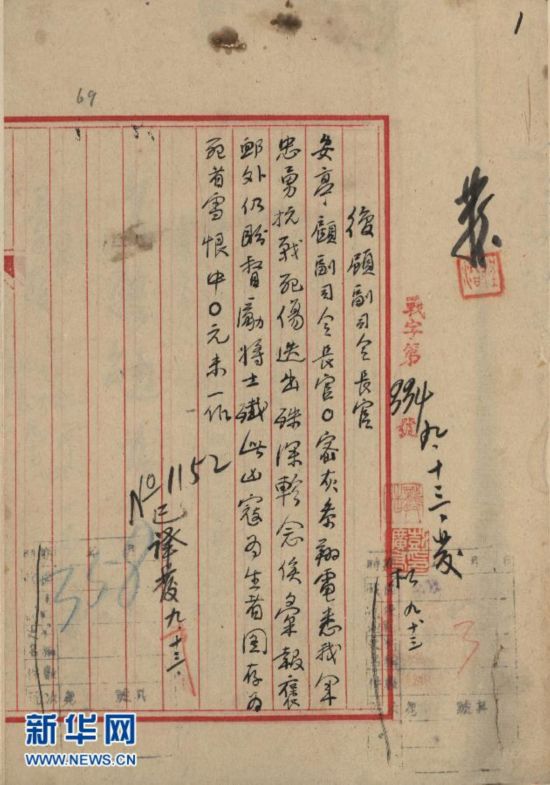 1
69
戰字第334號
九、十三、發
松 九、十三
復顧副司令長官
安亭、顧副司令長官〇密灰參翔電悉我軍
忠勇抗戰死傷迭出殊深軫念俟彙報褒
卹外仍盼督勵將士殲此凶寇為生者圖存為
死者雪恨中〇元未一作
No 1152
已譯發 九、十三、
358
3
新华网
WWW.NEWS.CN